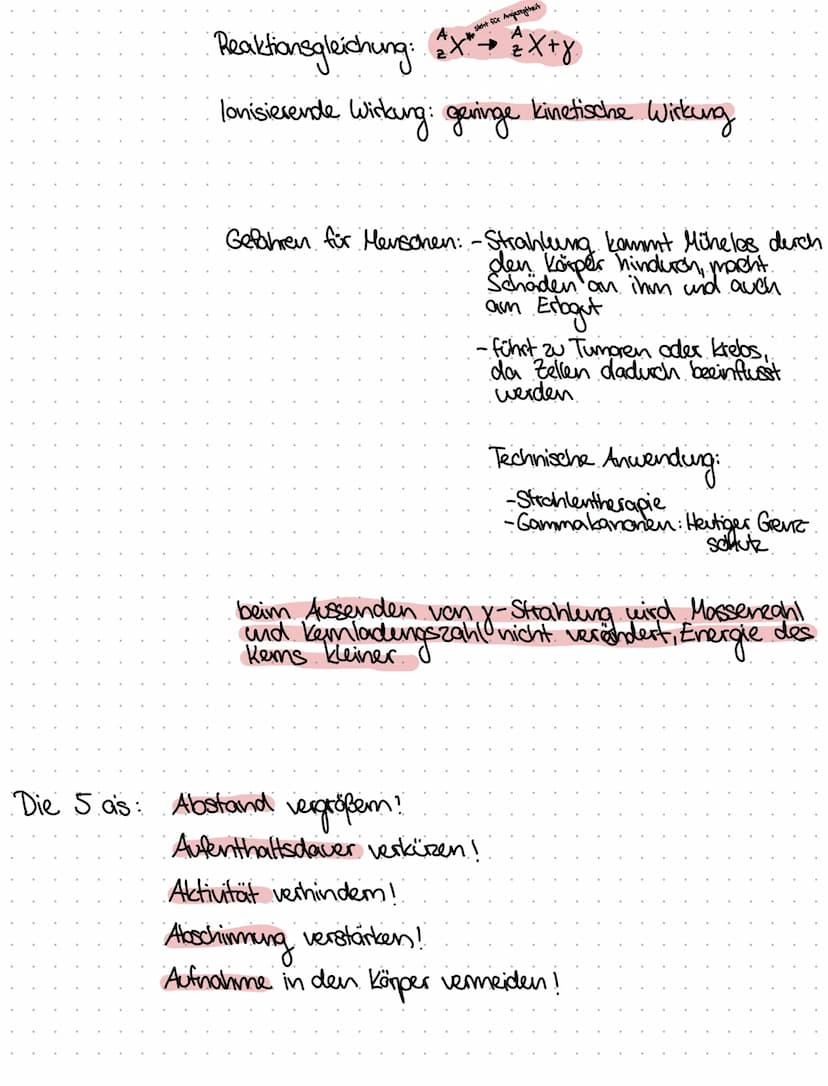 * steht für Angeregtheit
Reaktionsgleichung: A/Z X* → A/Z X+γ
Ionisierende Wirkung: geringe kinetische Wirkung
Gefahren für Menschen: - Strahlung kommt Mühelos durch
den Körper hindurch, macht
Schäden an ihm und auch
am Erbgut
- führt zu Tumoren oder Krebs,
da Zellen dadurch beeinflusst
werden
Technische Anwendung:
- Strahlentherapie
- Gammakanonen: Heutiger Grenz
schutz
beim Aussenden von γ-Strahlung wird Massenzahl
und Kernladungszahl nicht verändert, Energie des
Kerns kleiner
Die 5 a's: Abstand vergrößern!
Aufenthaltsdauer verkürzen!
Aktivität verhindern!
Abschirmung verstärken!
Aufnahme in den Körper vermeiden!